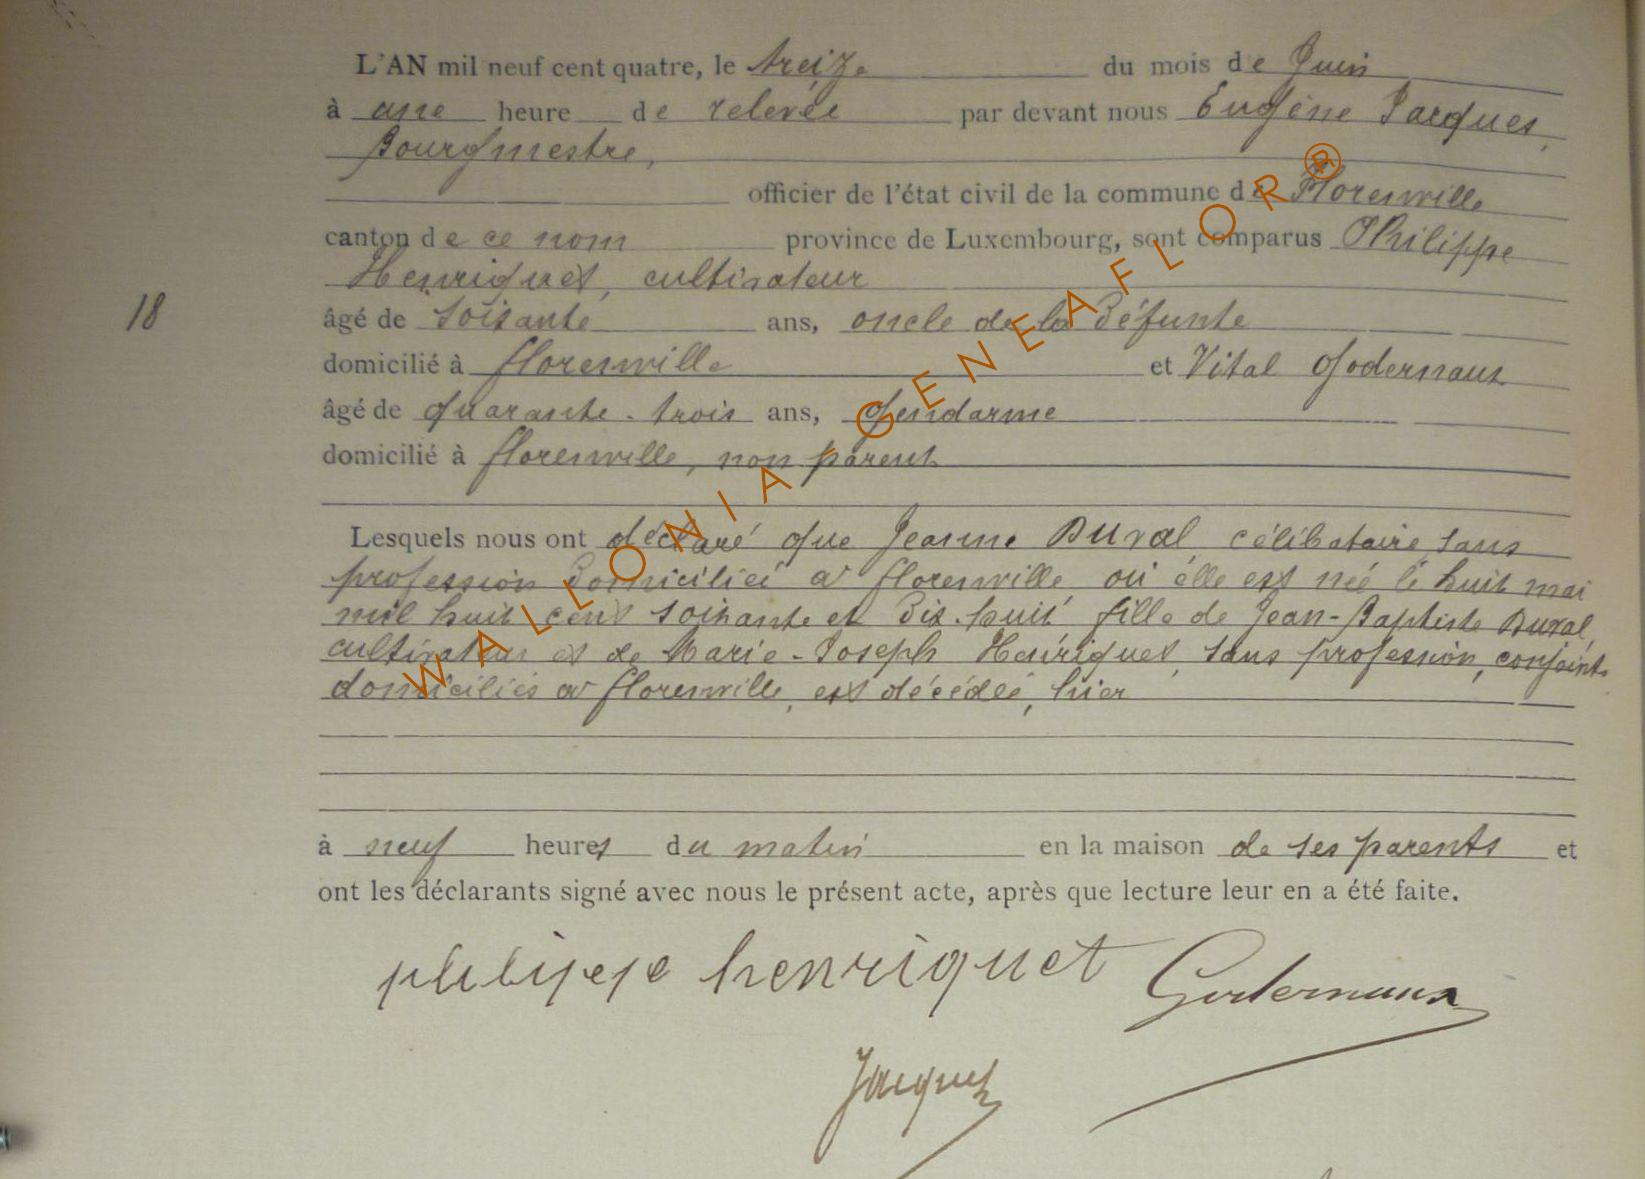 L'AN mil neuf cent quatre, le treize du mois de Juin
à une heure de relevée par devant nous Eugène Jacques,
Bourgmestre,
officier de l'état civil de la commune de Florenville
canton de ce nom province de Luxembourg, sont comparus Philippe
Henriquet, cultivateur
18
âgé de soixante ans, oncle de la défunte
domicilié à florenville et Vital Godernaux
âgé de quarante-trois ans, gendarme
domicilié à florenville, non parent
Lesquels nous ont déclaré que Jeanne Duval, célibataire, sans
profession domiciliée à florenville, où elle est née le huit mai
mil huit cent soixante et dix-huit fille de Jean-Baptiste Duval,
cultivateur et de Marie-Joseph Henriquet, sans profession, conjoints
domiciliés à florenville, est décédée, hier
à neuf heures du matin en la maison de ses parents et
ont les déclarants signé avec nous le présent acte, après que lecture leur en a été faite.
philippe henriquet Godernaux
Jacques
WALLONIA - GENEAFLOR®